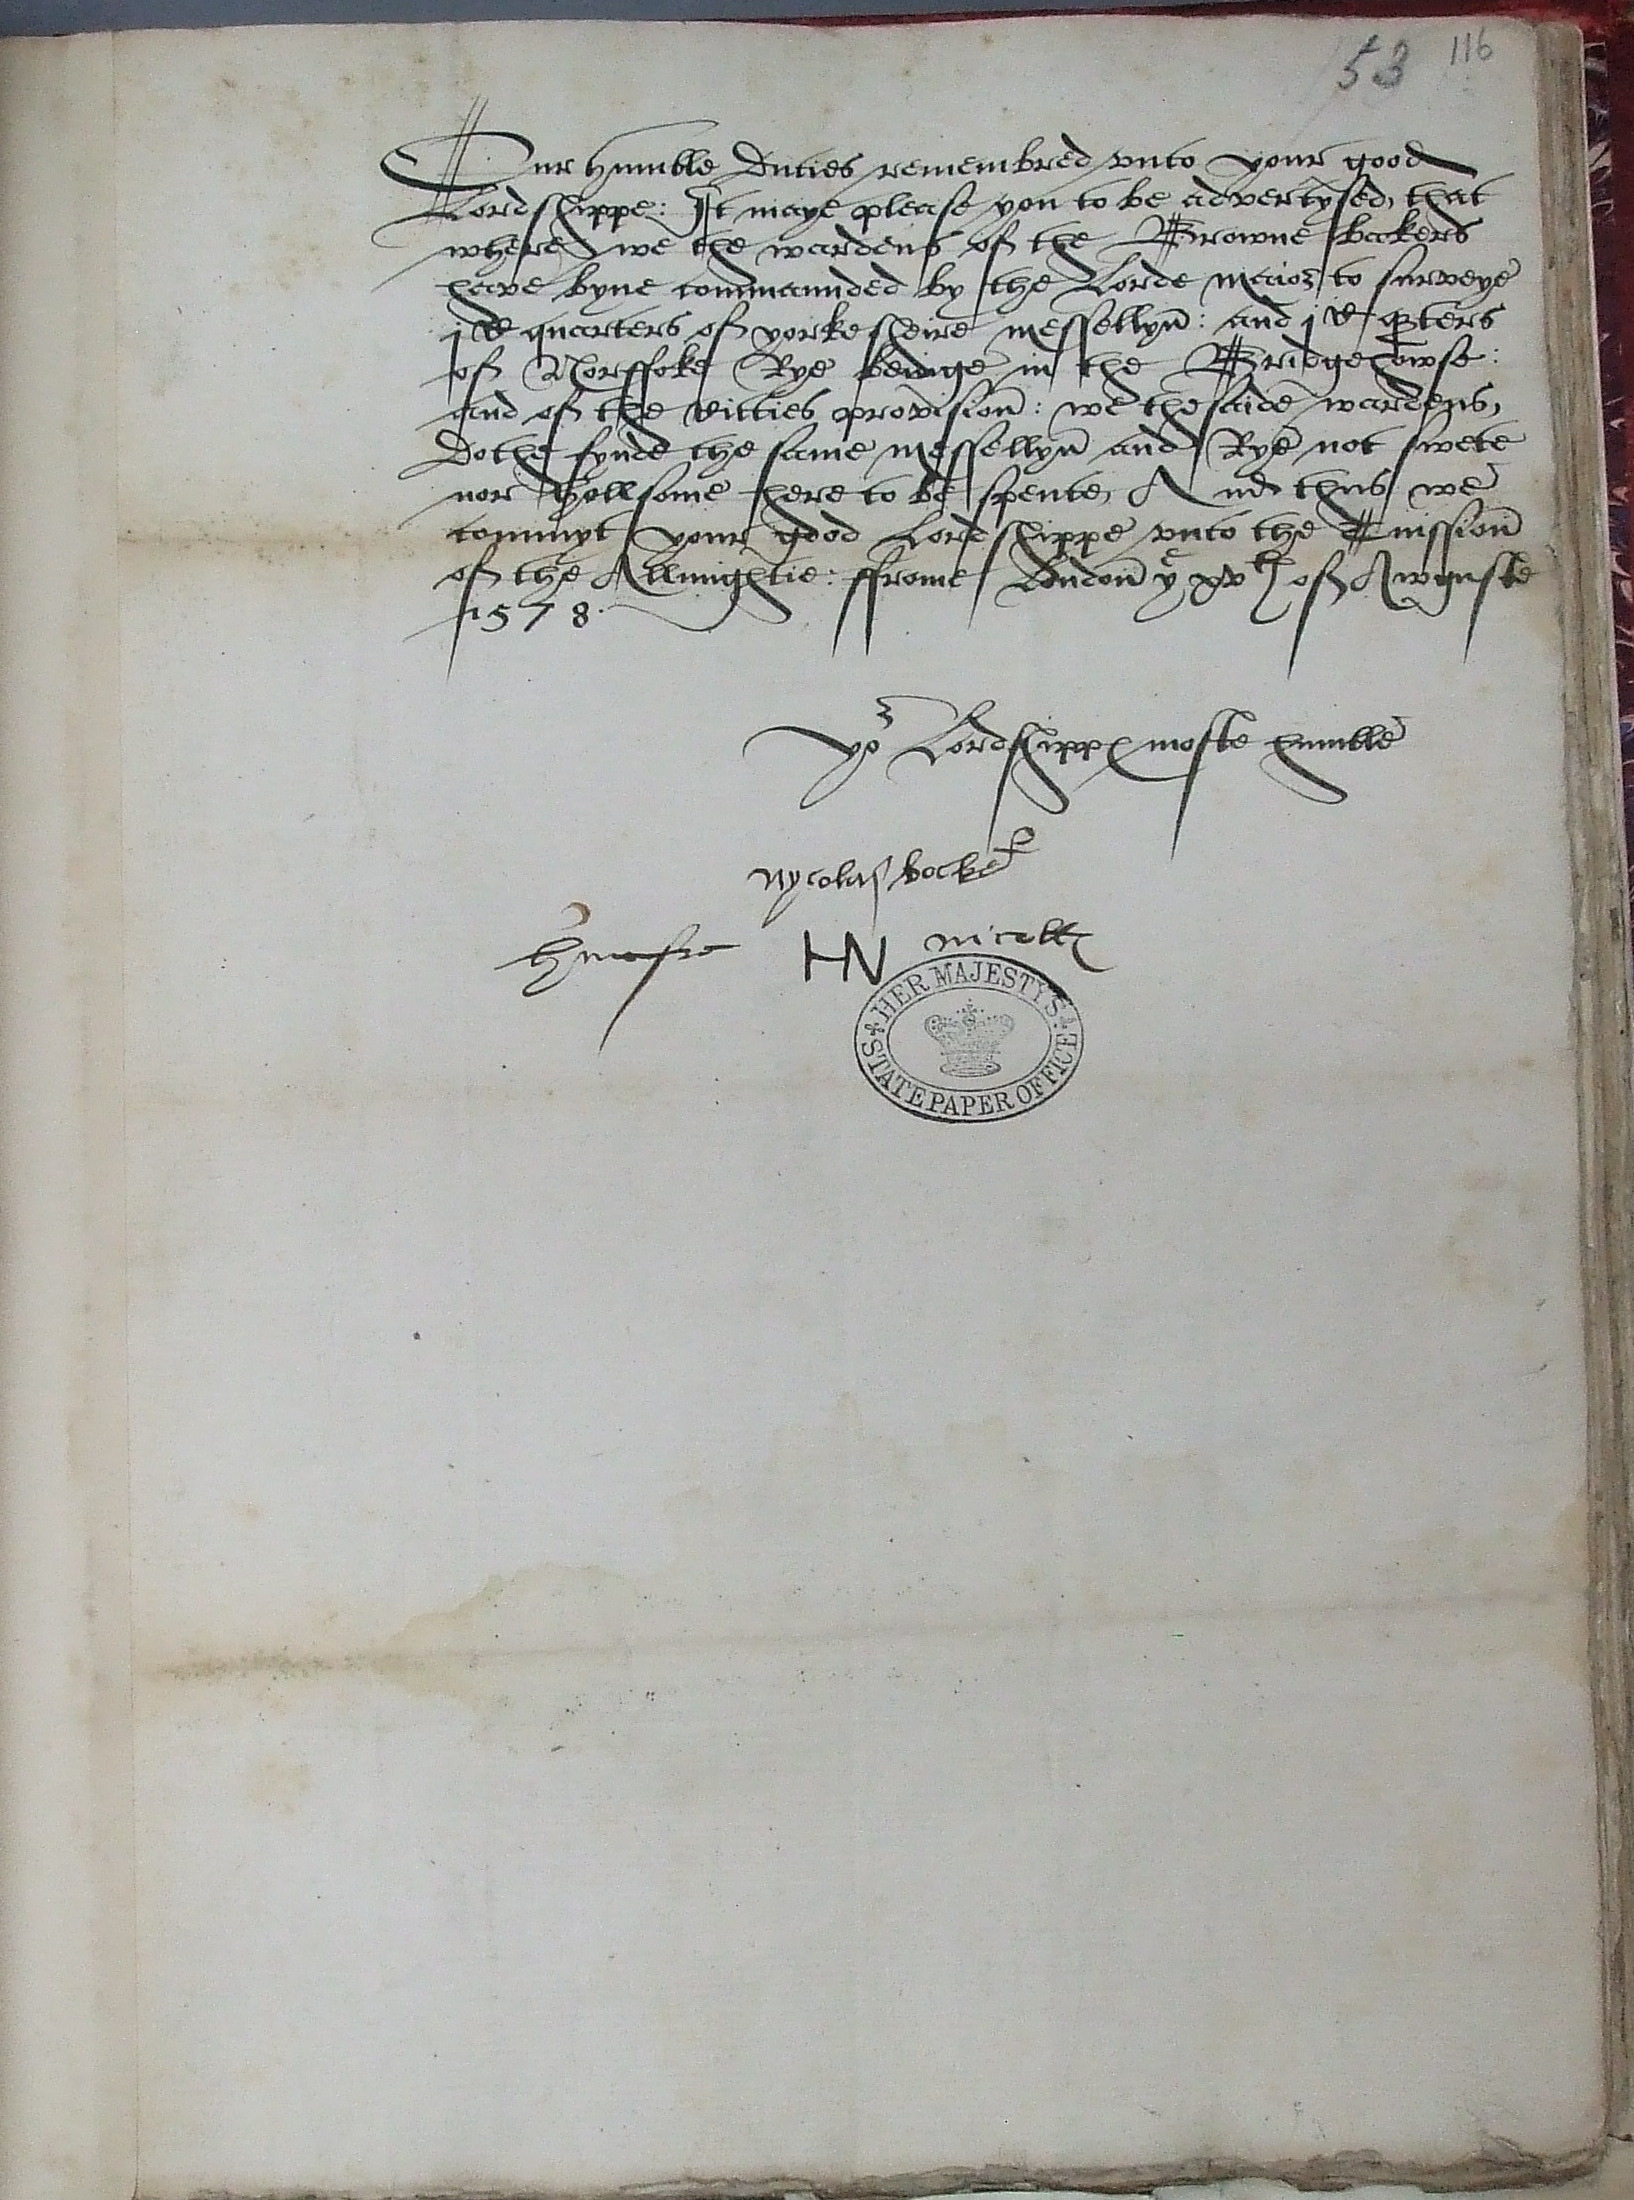 53 116
Our humble duties remembred vnto your good
Lordshippe: It maye please you to be advertysed, that
where we the wardens of the Browne bakers
have byne commaunded by the Lorde maior to surveye
j C quarters of yorkesheire messellyn: and j C qrters
of Norffoke Rye beinge in the Bridgehowse:
and of the Citties provision: we the saide wardens,
dothe fynde the same messellyn and Rye not swete
nor hollsome here to be spente, And thus we
commyt your good Lordshippe vnto the tuission
of the Allmightie: ffrome London ye xvth of Awguste
1578.
yor Lordshipps moste humble
nycolas bocker
HN nicolls
HER MAJESTY'S
STATE PAPER OFFICE